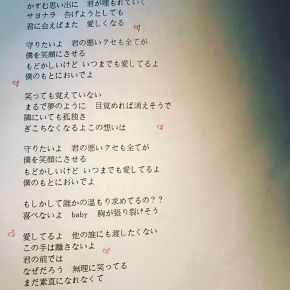 かすむ思い出に　君が埋もれていく
サヨナラ　告げようとしても
君に会えばまた　愛しくなる
守りたいよ　君の悪いクセも全てが
僕を笑顔にさせる
もどかしいけど いつまでも愛してるよ
僕のもとにおいでよ
笑っても覚えていない
まるで夢のように　目覚めれば消えそうで
隣にいても孤独さ
ぎこちなくなるよこの想いは
守りたいよ　君の悪いクセも全てが
僕を笑顔にさせる
もどかしいけど いつまでも愛してるよ
僕のもとにおいでよ
もしかして誰かの温もり求めてるの？？
喜べないよ　baby　胸が張り裂けそう
愛してるよ　他の誰にも渡したくない
この手は離さないよ
君の前では
なぜだろう　無理に笑ってる
まだ素直になれなくて